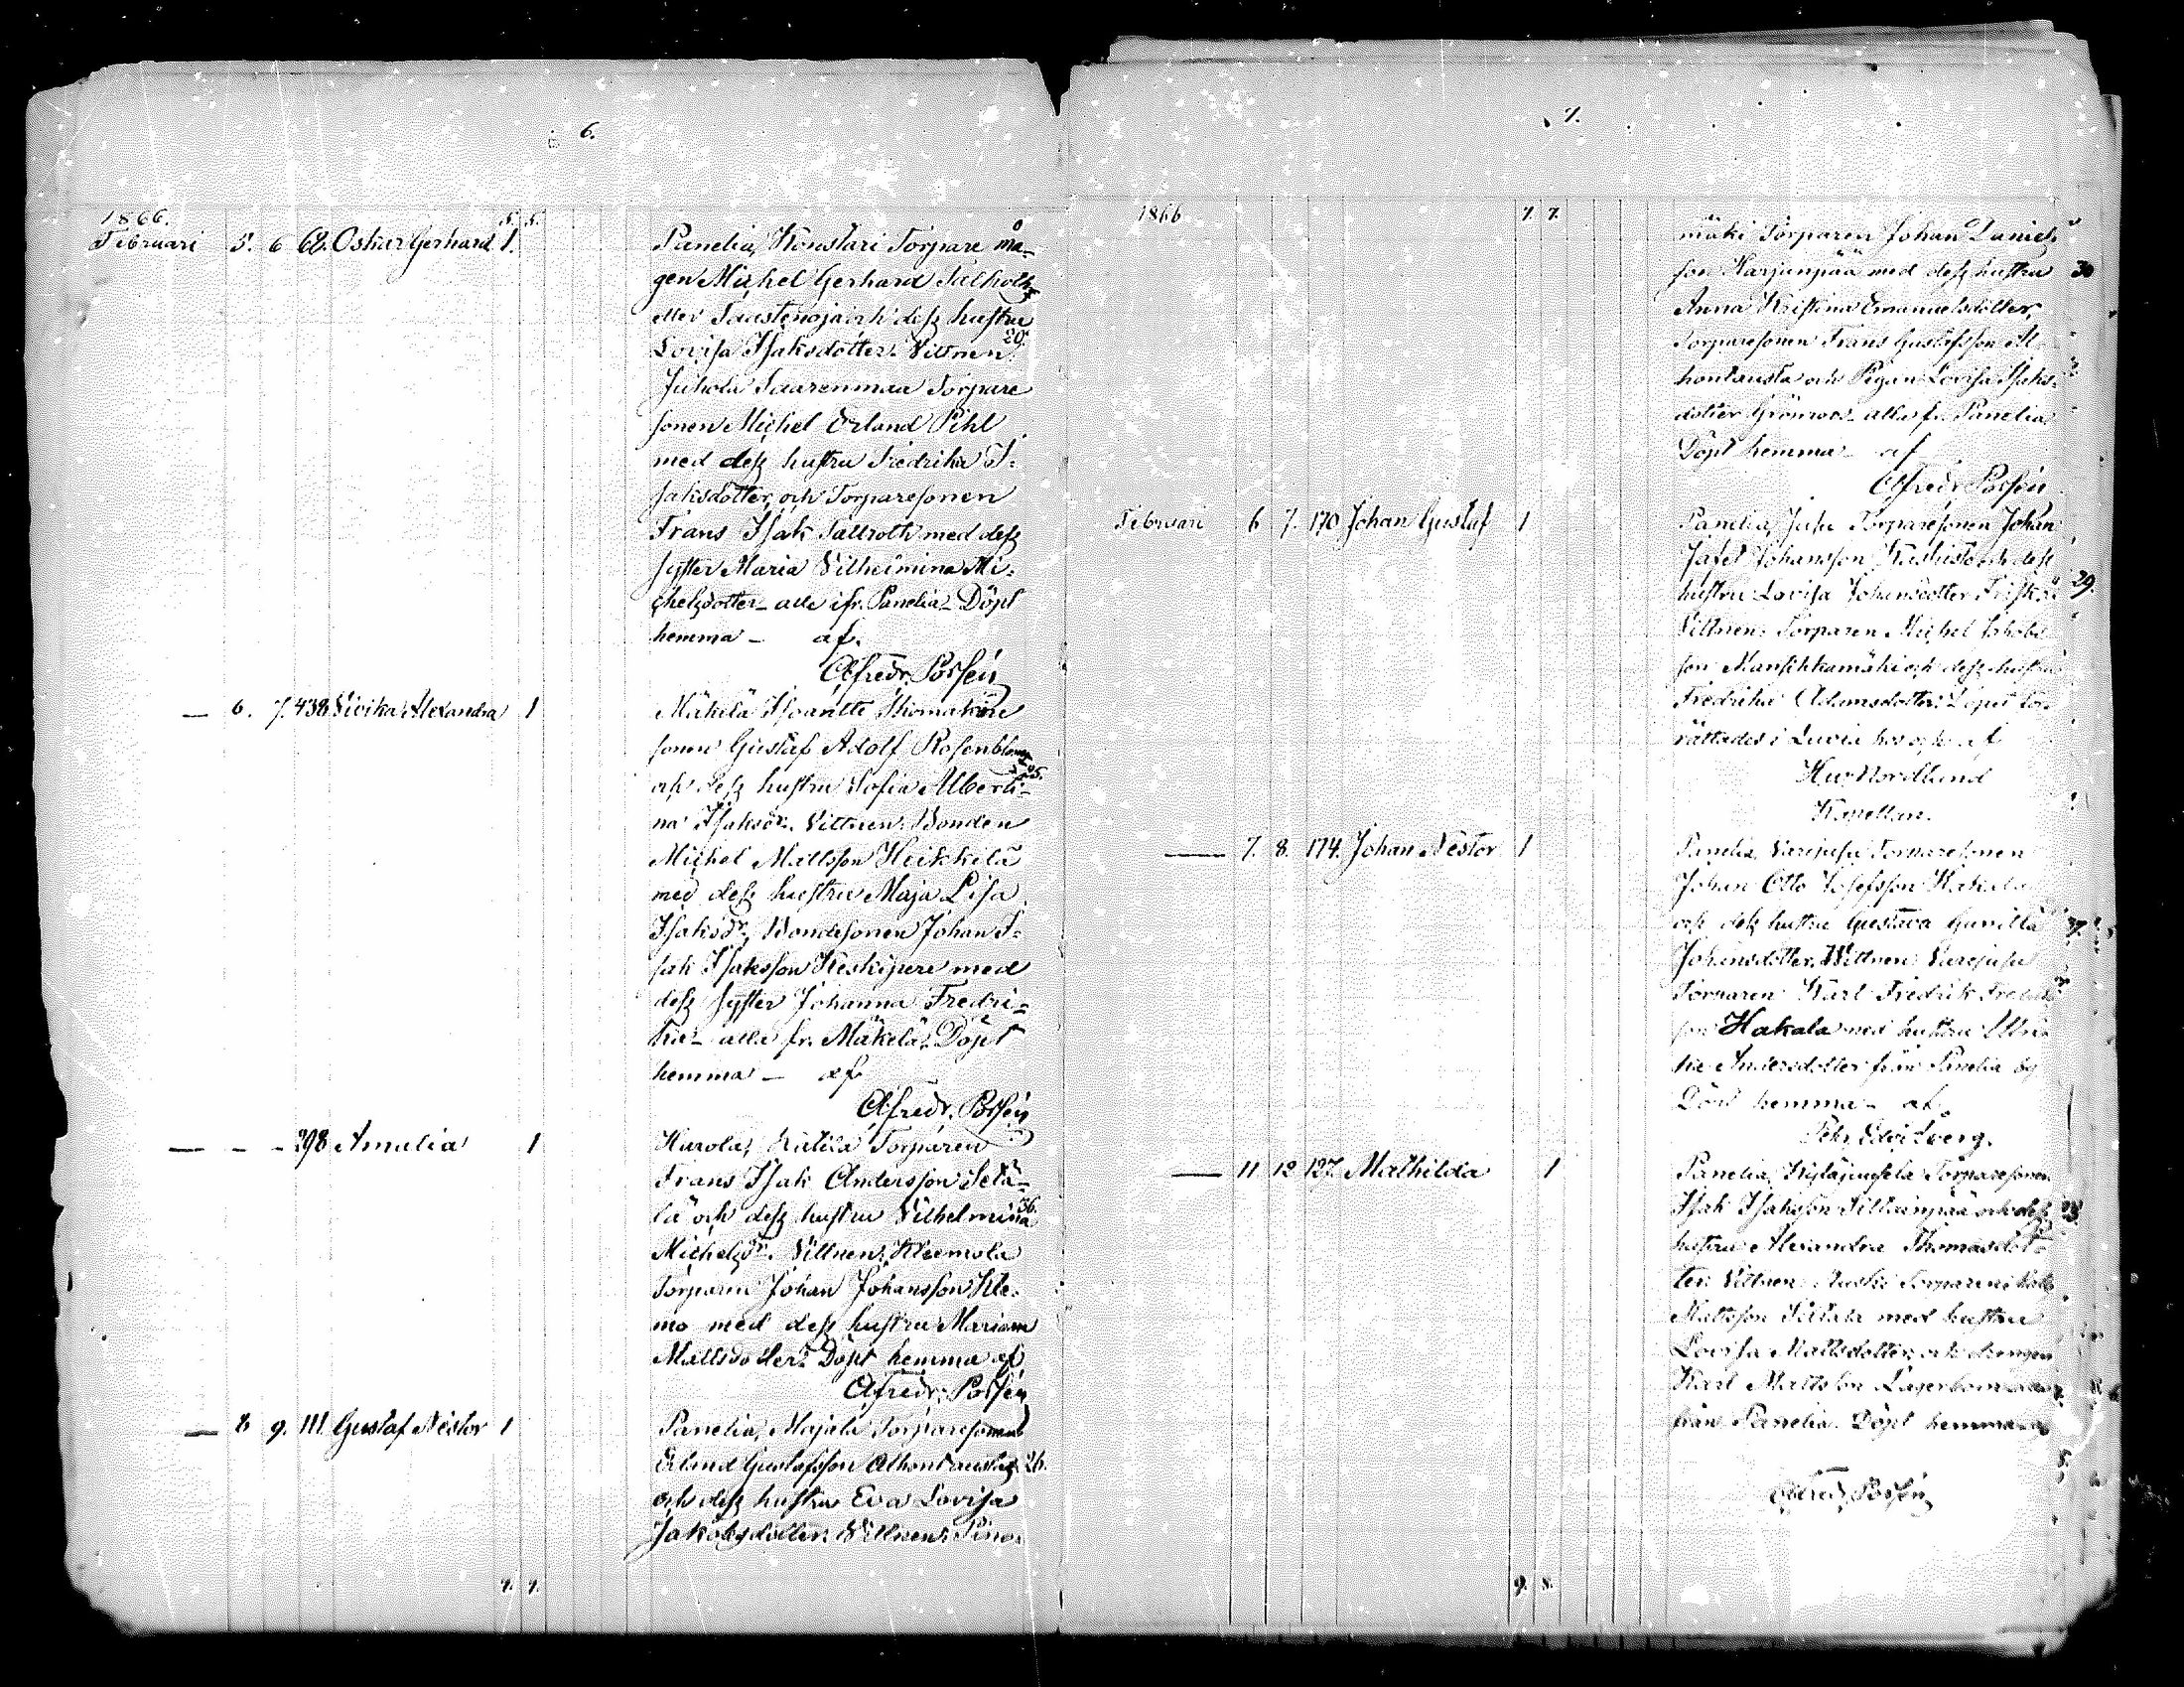 6.
1866.
5. 5.
Februari 5. 6 68. Oskar Gerhard 1.
Panelia, Konstari Torpare må-
gen Michel Gerhard
eller och dess hustru
29.
Lovisa Isaksdotter. Vittnen:
Juhola Saarenmaa Torpare
sonen Michel Erland Pihl
med dess hustru Fredrika I-
saksdotter, och Torparesonen
Frans Isak Sallroth med dess
syster Maria Vilhelmina Mi-
chelsdotter - alla ifr. Panelia - Döpt
hemma - af.
Alfredr. Posséin
— 6. 7. 438. Vivika Alexandra 1
Mäkelä Isoantti
sonen Gustaf Adolf Rosenblom
25.
och dess hustru Sofia Alberti-
na Isaksdr. Vittnen: Bonden
Michel Mattsson Heikkilä
med dess hustru Maja Lisa
Isaksdr., Bondesonen Johan I-
sak Isaksson Keskipere med
dess syster Johanna Fredri-
ka - alla fr. Mäkelä. Döpt
hemma - af
Alfredr. Posséin
— - - 298 Amalia 1
Harola, Torparen
Frans Isak Andersson Setä-
lä och dess hustru Vilhelmina
36.
Michelsdr. Vittnen: Kleemola
Torparen Johan Johansson Kle-
mo med dess hustru Mariana
Mattsdotter. Döpt hemma af
Alfredr. Posséin
— 8 9. 111. Gustaf Nestor 1
Panelia, Majala Torparesonen
Erland Gustafsson Alhontausta 26.
och dess hustru Eva Lovisa
Jakobsdotter. Vittnen: Pino-
7. 7.
7.
1866
7. 7.
mäki Torparen Johan Daniels-
son Harjunpää med dess hustru 30
Anna Kristina Emanuelsdotter,
Torparesonen Frans Gustafsson Al-
hontausta och Pigan Lovisa Isaks-
dotter Grönroos - alla fr. Panelia.
Döpt hemma - af
Alfredr. Posséin
Februari 6 7. 170 Johan Gustaf 1
Panelia, Juse Torparesonen Johan
Jafet Johansson och dess
hustru Lovisa Johansdotter Frisk. 29.
Vittnen: Torparen Michel Jakobs-
son Mansikkamäki och dess hustru
Fredrika Adamsdotter. Döpet för-
rättades i Luvia hos och af
Nordlund
Kapellan.
— 7. 8. 174. Johan Nestor 1
Panelia, Varejusu Torparesonen
Johan Otto Josefsson Hakala
och dess hustru Gustava Gunilla 37.
Johansdotter. Vittnen: Varejusu
Torparen Karl Fredrik
son Hakala med hustru Ulri-
ka Andersdotter från Panelia by
Döpt hemma - af.
Pehr Edv.
— 11 12 127. Mathilda 1
Panelia, Torparesonen
Isak Isaksson och dess 28.
hustru Alexandra Thomasdot-
ter. Vittnen: Torparen
Mattsson med hustru
Lovisa Mattsdotter, och drengen
Karl Mattsson
från Panelia. Döpt hemma af
Alfredr. Posséin
9. 8.